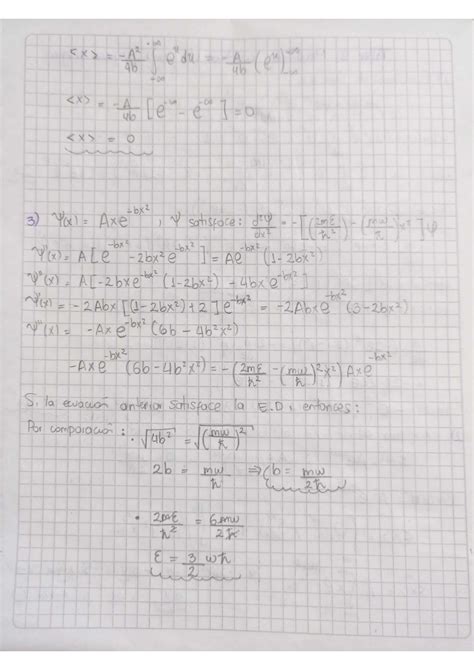 <x> = -A²/4b ∫_{+∞}^{-∞} e^u du = -A/4b (e^u)
<x> = -A/4b [e^{-∞} - e^{-∞}] = 0
<x> = 0
3) Ψ(x) = Axe^{-bx²}, Ψ satisface: d²Ψ/dx² = -[(2mE/ħ²) - (mω/ħ)²x²]Ψ
Ψ'(x) = A[e^{-bx²} - 2bx²e^{-bx²}] = Ae^{-bx²}(1-2bx²)
Ψ''(x) = A[-2bxe^{-bx²}(1-2bx²) - 4bxe^{-bx²}]
Ψ''(x) = -2Abx[(1-2bx²)+2]e^{-bx²} = -2Abxe^{-bx²}(3-2bx²)
Ψ''(x) = -Axe^{-bx²}(6b-4b²x²)
-Axe^{-bx²}(6b-4b²x²) = -(2mE/ħ² - (mω/ħ)²x²)Axe^{-bx²}
Si la ecuación anterior satisface la E.D, entonces:
Por comparación: • √4b² = √(mω/ħ)²
2b = mω/ħ ⇒ b = mω/2ħ
• 2mE/ħ² = 6mω/2ħ
E = 3/2 ωħ